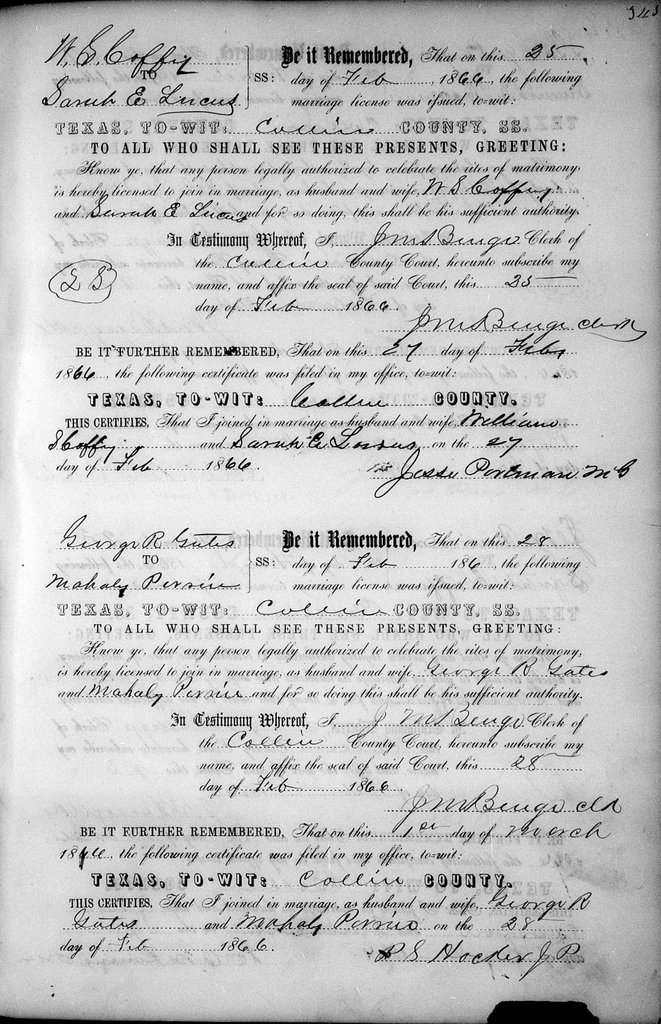 343
W. S. Coffey
TO
Sarah E Lucus
SS:
Be it Remembered, That on this 25
day of Feb 1866, the following
marriage license was issued, to-wit:
TEXAS, TO-WIT: Collin COUNTY, SS.
TO ALL WHO SHALL SEE THESE PRESENTS, GREETING:
Know ye, that any person legally authorized to celebrate the rites of matrimony
is hereby licensed to join in marriage, as husband and wife, W S Coffey
and Sarah E Lucus and for so doing, this shall be his sufficient authority.
In Testimony Whereof, I, J M Benge Clerk of
the Collin County Court, hereunto subscribe my
L S
name, and affix the seal of said Court, this 25
day of Feb 1866
J M Benge clerk
BE IT FURTHER REMEMBERED, That on this 27 day of Feb
1866, the following certificate was filed in my office, to-wit:
TEXAS, TO-WIT: Collin COUNTY.
THIS CERTIFIES, That I joined in marriage as husband and wife, William
S Coffy and Sarah E Lucus, on the 27
day of Feb 1866.
Jesse Portman M G
George R Gates
TO
Mahaly Perrin
SS:
Be it Remembered, That on this 28
day of Feb 186, the following
marriage license was issued, to-wit:
TEXAS, TO-WIT: Collin COUNTY, SS.
TO ALL WHO SHALL SEE THESE PRESENTS, GREETING:
Know ye, that any person legally authorized to celebrate the rites of matrimony,
is hereby licensed to join in marriage, as husband and wife, George R Gates
and Mahaly Perrin and for so doing this shall be his sufficient authority.
In Testimony Whereof, I, J M Benge Clerk of
the Collin County Court, hereunto subscribe my
name, and affix the seal of said Court, this 28
day of Feb 1866
J M Benge clk
BE IT FURTHER REMEMBERED, That on this 1st day of March
1866, the following certificate was filed in my office, to-wit:
TEXAS, TO-WIT: Collin COUNTY.
THIS CERTIFIES, That I joined in marriage, as husband and wife, George R
Gates and Mahaly Perrin on the 28
day of Feb 1866.
R S Hocker J P